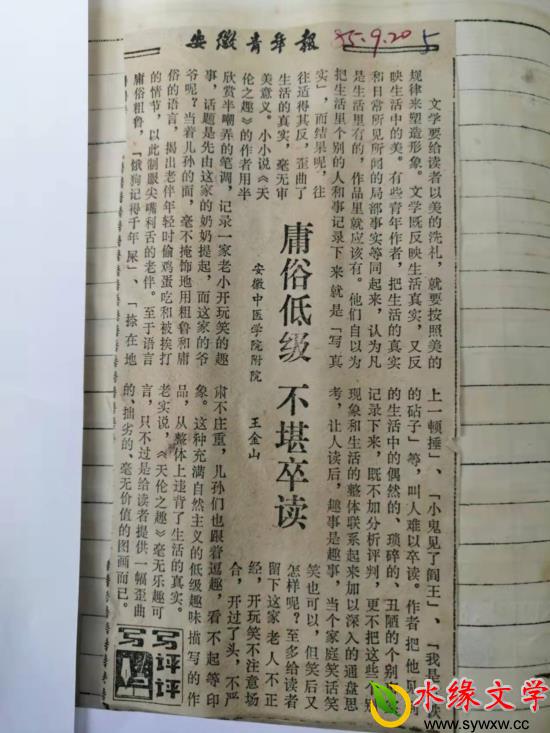 安徽青年报
85.9.20
5
庸俗低级 不堪卒读
安徽中医学院附院 王金山
文学要给读者以美的洗礼，就要按照美的
规律来塑造形象。文学既反映生活真实，又反
映生活中的美。有些青年作者，把生活的真实
和日常所见所闻的局部事实等同起来，认为凡
是生活里有的，作品里就应该有。他们自以为
把生活里个别的人和事记录下来就是「写真
实」，而结果呢，往
往适得其反，歪曲了
生活的真实，毫无审
美意义。小小说《天
伦之趣》的作者用半
欣赏半嘲弄的笔调，记录一家老小开玩笑的趣
事，话题是先由这家的奶奶提起，而这家的爷
爷呢？当着儿孙的面，毫不掩饰地用粗鲁和庸
俗的语言，揭出老伴年轻时偷鸡蛋吃和被挨打
的情节，以此制服尖嘴利舌的老伴。至于语言
庸俗粗鲁，「饿狗记得千年屎」、「捺在地
上一顿捶」、「小鬼见了阎王」、「我是铁
的砧子」等，叫人难以卒读。作者把他见
的生活中的偶然的、琐碎的、丑陋的个别
记录下来，既不加分析评判，更不把这些个别
现象和生活的整体联系起来加以深入的通盘思
考，让人读后，趣事是趣事，当个家庭笑话笑
笑也可以，但笑后又
怎样呢？至多给读者
留下这家老人不正
经，开玩笑不注意场
合，开过了头，不严
肃不庄重，儿孙们也跟着逗趣，看不起等印
象。这种充满自然主义的低级趣味描写的作
品，从整体上违背了生活的真实。
老实说，《天伦之趣》毫无乐趣可
言，只不过是给读者提供一幅歪曲
的、拙劣的、毫无价值的图画而已。
写评评写
水缘文学
www.sywxw.cn